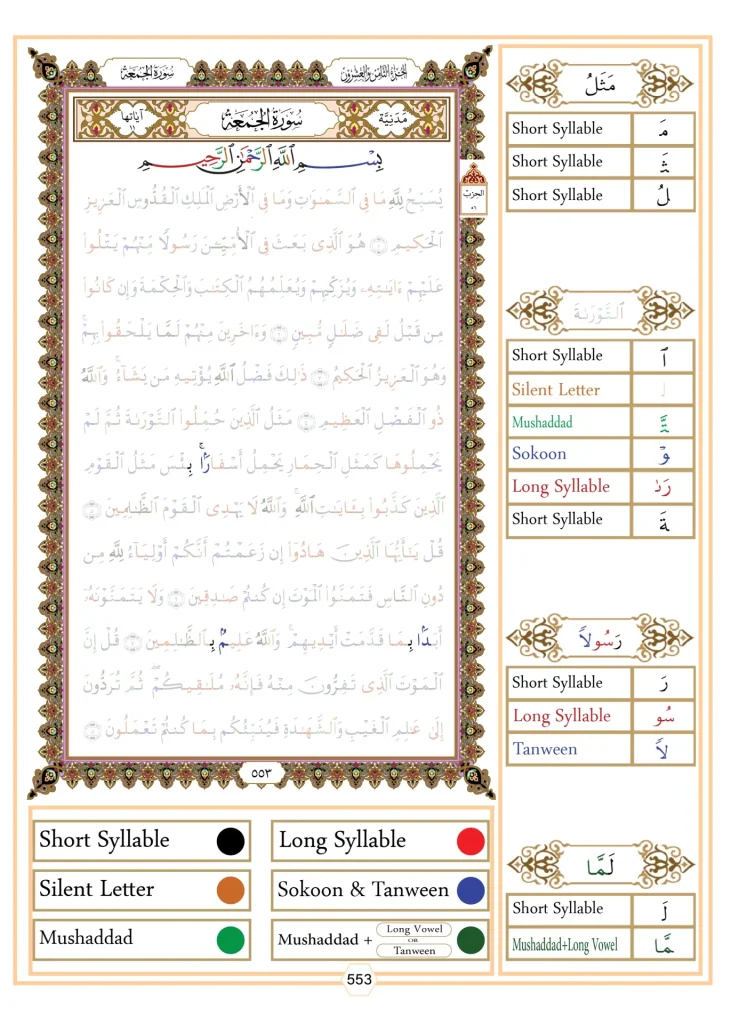 سُورَةُ الجُمُعَةِ
الجُزءُ الثَّامِنُ وَالعِشْرُونَ
آيَاتُهَا ١١
سُورَةُ الجُمُعَةِ
مَدَنِيَّة
بِسْمِ ٱللَّهِ ٱلرَّحْمَٰنِ ٱلرَّحِيمِ
الحِزْبُ ٥٦
يُسَبِّحُ لِلَّهِ مَا فِى ٱلسَّمَٰوَٰتِ وَمَا فِى ٱلْأَرْضِ ٱلْمَلِكِ ٱلْقُدُّوسِ ٱلْعَزِيزِ
ٱلْحَكِيمِ ١ هُوَ ٱلَّذِى بَعَثَ فِى ٱلْأُمِّيِّـۧنَ رَسُولًا مِّنْهُمْ يَتْلُوا۟
عَلَيْهِمْ ءَايَٰتِهِۦ وَيُزَكِّيهِمْ وَيُعَلِّمُهُمُ ٱلْكِتَٰبَ وَٱلْحِكْمَةَ وَإِن كَانُوا۟
مِن قَبْلُ لَفِى ضَلَٰلٍ مُّبِينٍ ٢ وَءَاخَرِينَ مِنْهُمْ لَمَّا يَلْحَقُوا۟ بِهِمْ ۚ
وَهُوَ ٱلْعَزِيزُ ٱلْحَكِيمُ ٣ ذَٰلِكَ فَضْلُ ٱللَّهِ يُؤْتِيهِ مَن يَشَآءُ ۚ وَٱللَّهُ
ذُو ٱلْفَضْلِ ٱلْعَظِيمِ ٤ مَثَلُ ٱلَّذِينَ حُمِّلُوا۟ ٱلتَّوْرَىٰةَ ثُمَّ لَمْ
يَحْمِلُوهَا كَمَثَلِ ٱلْحِمَارِ يَحْمِلُ أَسْفَارًۢا ۚ بِئْسَ مَثَلُ ٱلْقَوْمِ
ٱلَّذِينَ كَذَّبُوا۟ بِـَٔايَٰتِ ٱللَّهِ ۚ وَٱللَّهُ لَا يَهْدِى ٱلْقَوْمَ ٱلظَّٰلِمِينَ ٥
قُلْ يَٰٓأَيُّهَا ٱلَّذِينَ هَادُوٓا۟ إِن زَعَمْتُمْ أَنَّكُمْ أَوْلِيَآءُ لِلَّهِ مِن
دُونِ ٱلنَّاسِ فَتَمَنَّوُا۟ ٱلْمَوْتَ إِن كُنتُمْ صَٰدِقِينَ ٦ وَلَا يَتَمَنَّوْنَهُۥٓ
أَبَدًۢا بِمَا قَدَّمَتْ أَيْدِيهِمْ ۚ وَٱللَّهُ عَلِيمٌۢ بِٱلظَّٰلِمِينَ ٧ قُلْ إِنَّ
ٱلْمَوْتَ ٱلَّذِى تَفِرُّونَ مِنْهُ فَإِنَّهُۥ مُلَٰقِيكُمْ ۖ ثُمَّ تُرَدُّونَ
إِلَىٰ عَٰلِمِ ٱلْغَيْبِ وَٱلشَّهَٰدَةِ فَيُنَبِّئُكُم بِمَا كُنتُمْ تَعْمَلُونَ ٨
٥٥٣
مَثَلُ
Short Syllable مَ
Short Syllable ثَ
Short Syllable لُ
ٱلتَّوْرَىٰةَ
Short Syllable ٱ
Silent Letter ل
Mushaddad تَّ
Sokoon وْ
Long Syllable رَىٰ
Short Syllable ةَ
رَسُولًا
Short Syllable رَ
Long Syllable سُو
Tanween لًا
لَمَّا
Short Syllable لَ
Mushaddad+Long Vowel مَّا
Short Syllable
Long Syllable
Silent Letter
Sokoon & Tanween
Mushaddad
Mushaddad + Long Vowel OR Tanween
553